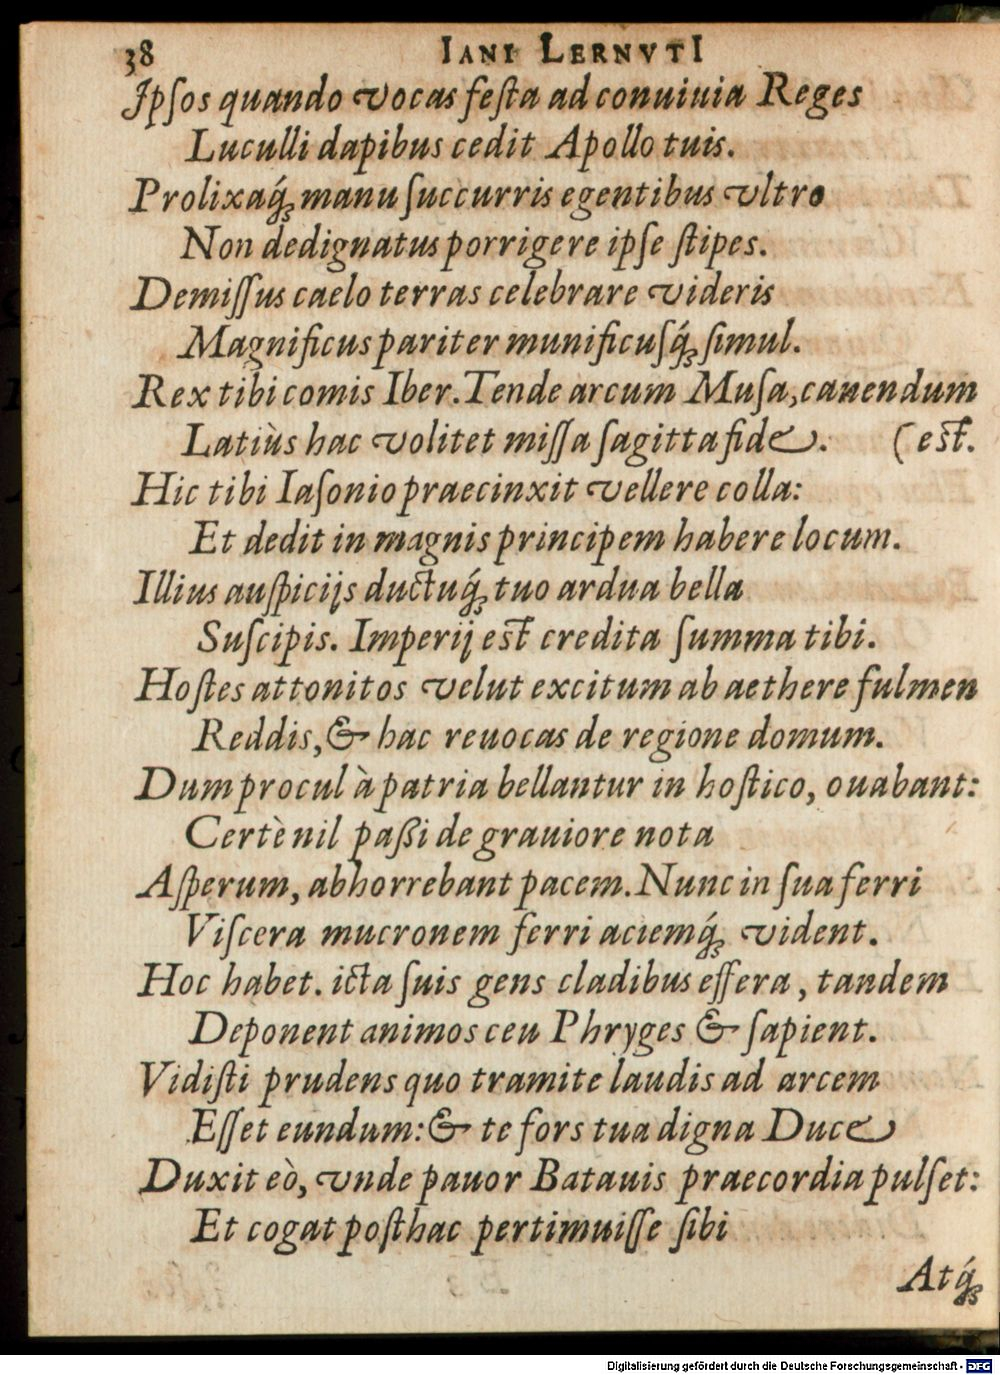 38 IANI LERNVTI
Ipſos quando vocas feſta ad conuiuia Reges
Luculli dapibus cedit Apollo tuis.
Prolixaq́; manu ſuccurris egentibus vltro
Non dedignatus porrigere ipſe ſtipes.
Demiſſus caelo terras celebrare videris
Magnificus pariter munificuſq́; ſimul.
Rex tibi comis Iber. Tende arcum Muſa, canendum
Latiùs hac volitet miſſa ſagitta fide. (eſt.
Hic tibi Iaſonio praecinxit vellere colla:
Et dedit in magnis principem habere locum.
Illius auſpicijs ductuq́; tuo ardua bella
Suſcipis. Imperij eſt credita ſumma tibi.
Hoſtes attonitos velut excitum ab aethere fulmen
Reddis, & hac reuocas de regione domum.
Dum procul à patria bellantur in hoſtico, ouabant:
Certè nil paßi de grauiore nota
Aſperum, abhorrebant pacem. Nunc in ſua ferri
Viſcera mucronem ferri aciemq́; vident.
Hoc habet. icta ſuis gens cladibus effera, tandem
Deponent animos ceu Phryges & ſapient.
Vidiſti prudens quo tramite laudis ad arcem
Eſſet eundum: & te fors tua digna Duce
Duxit eò, vnde pauor Batauis praecordia pulſet:
Et cogat poſthac pertimuiſſe ſibi
Atq́;
Digitalisierung gefördert durch die Deutsche Forschungsgemeinschaft - DFG